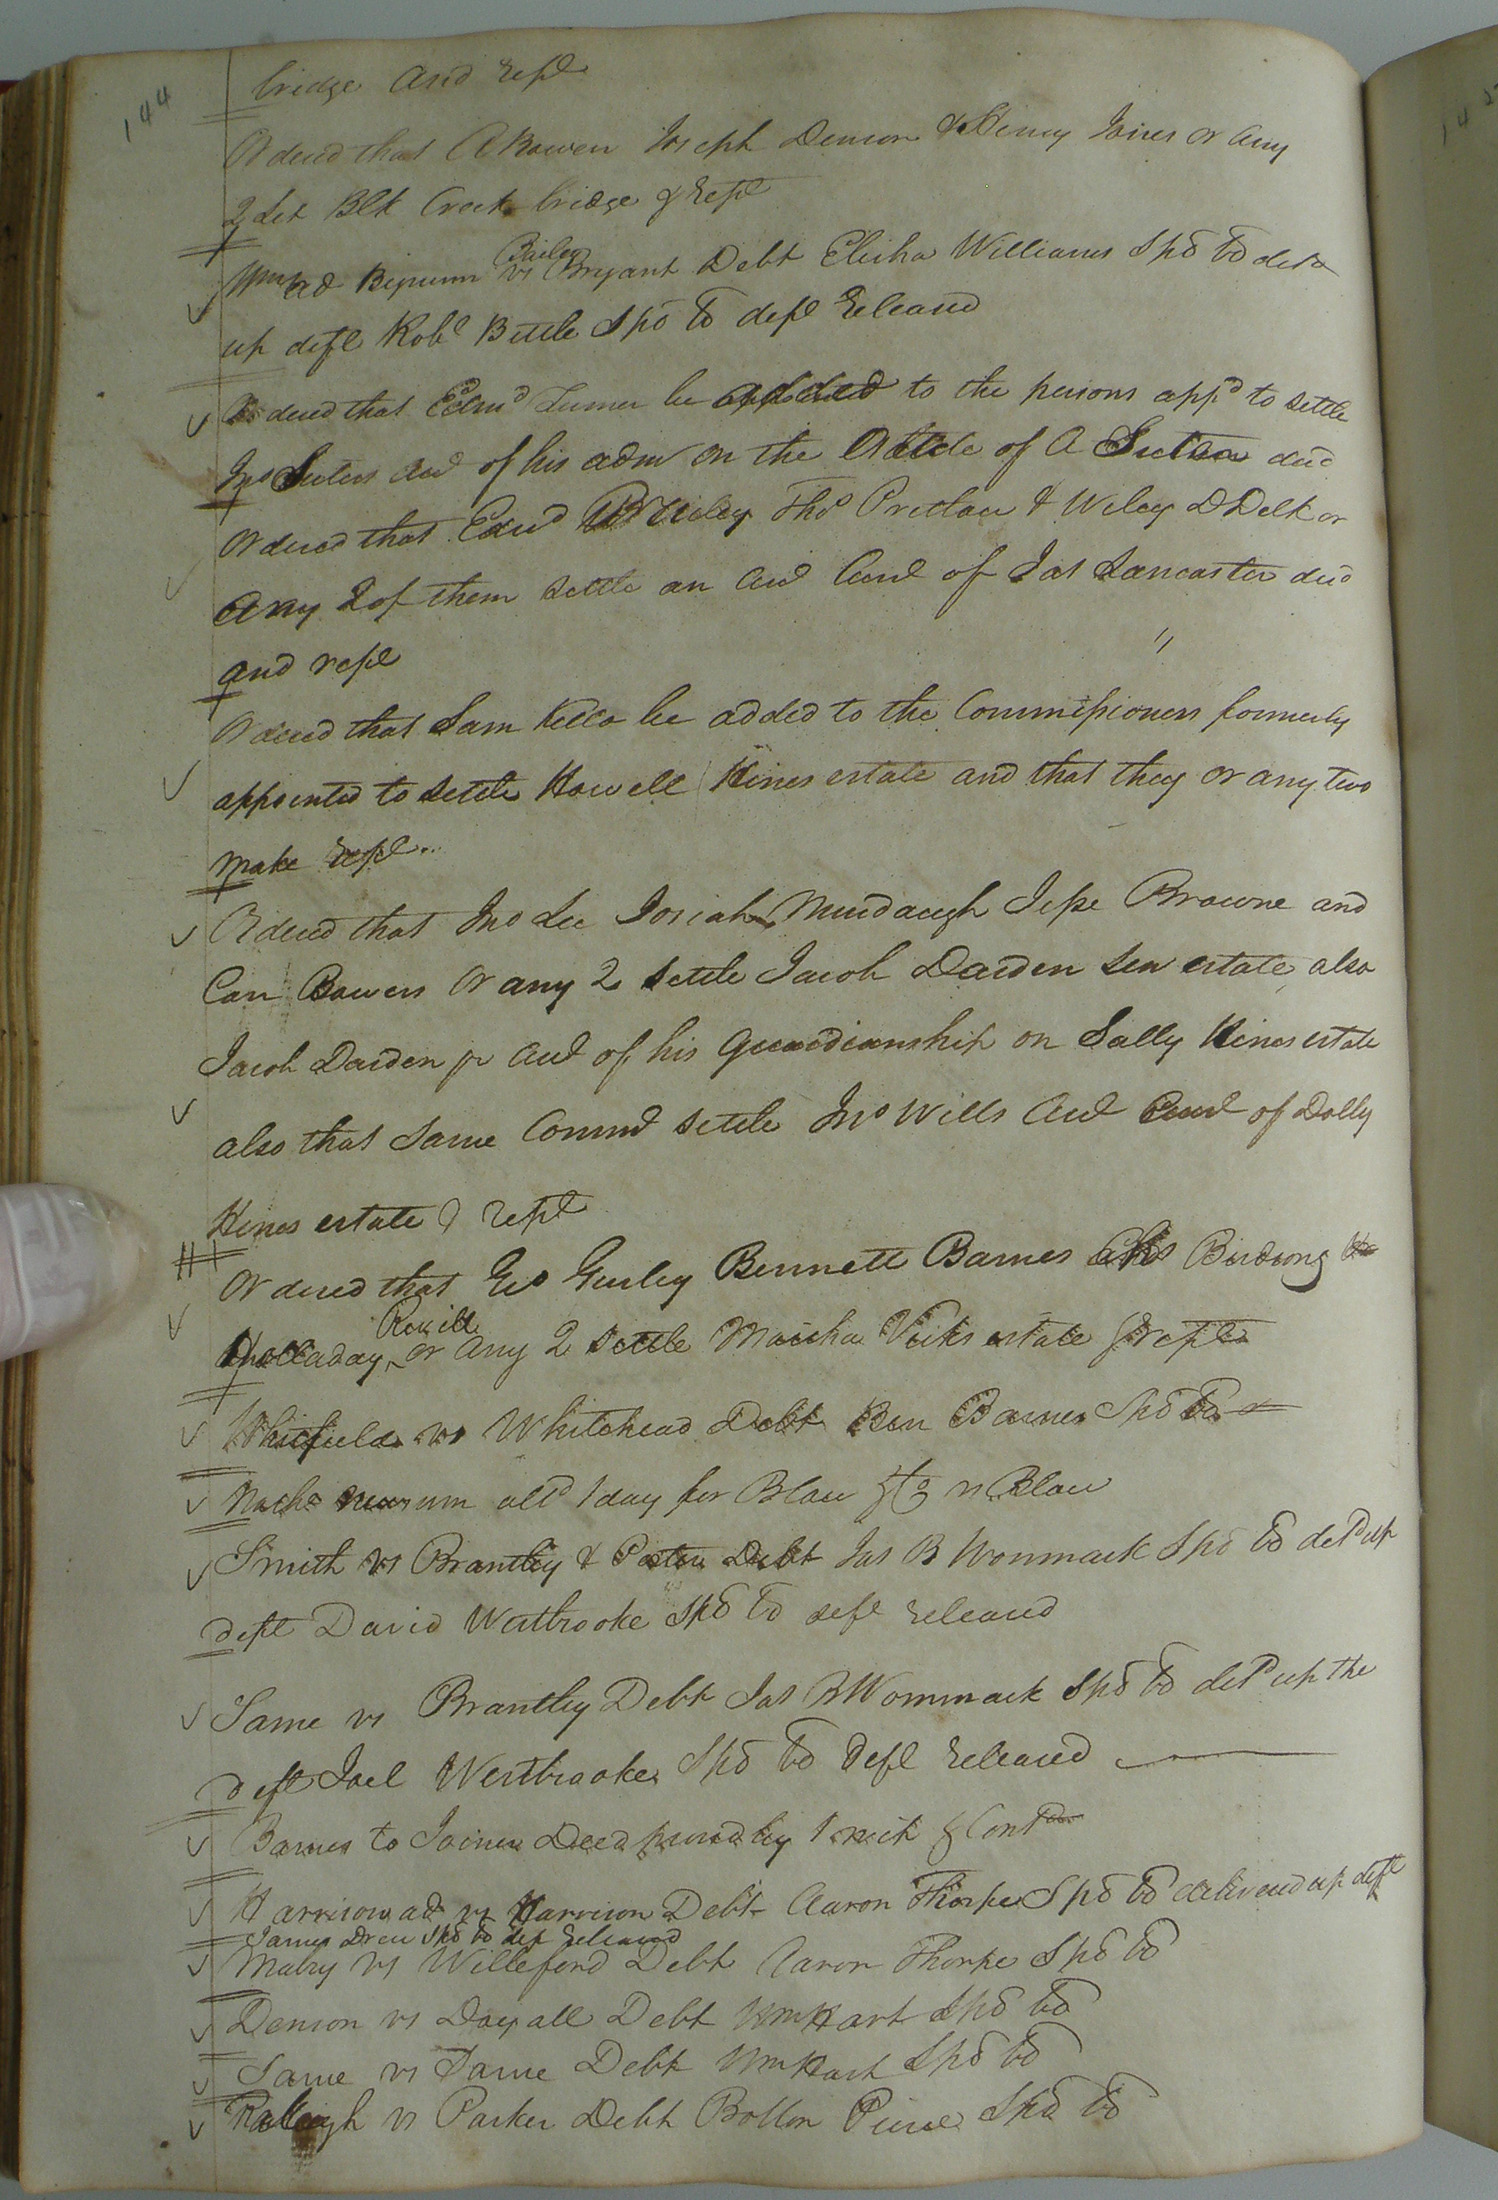 144
bridge and rept
Ordered that A Bowen Joseph Denson & Henry Joiner or any
2 let Blk Creek bridge & rept
Wms ad Bynum vs Bailey Bryant Debt Elisha Williams Spd bd deld
up deft Robt Bittle Spd bd deft released
Ordered that Edmd Turner be added to the persons appd to settle
Jno Suters acct of his adm on the estate of A Suter decd
Ordered that Edwd Thos Pretlow & Wiley D Delk or
any 2 of them settle an acct Curt of Jas Lancaster decd
and rept
Ordered that Sam Kello be added to the Commissioners formerly
appointed to settle Howell Hines estate and that they or any two
make rept
Ordered that Jno Lee Josiah Murdaugh Jesse Browne and
Carr Bowers or any 2 settle Jacob Darden Sen estate also
Jacob Darden jr acct of his guardianship on Sally Hines estate
also that same Commrs settle Jno Wills acct Curt of Dolly
Hines estate & rept
Ordered that Geo Gurley Bennett Barnes Birdsong
Holladay Rowill or any 2 settle Marcha Vicks estate & rept
Whitfield vs Whitehead Debt Ben Barnes Spd bd
Nachs alld 1 day for Blow vs Blow
Smith vs Brantley & Debt Jas B Wommack Spd bd deld up
deft David Westbrooke Spd bd deft released
Same vs Brantley Debt Jas B Wommack Spd bd deld up the
deft Joel Westbrooke Spd bd deft released
Barnes to Joiner Deed proved by 1 wit & Contd
Harrison ad vs Harrison Debt Aaron Thorpe Spd bd delivered up deft
James Drew Spd bd deft released
Mabry vs Williford Debt Aaron Thorpe Spd bd
Denson vs Doyall Debt Wm Hart Spd bd
Same vs Same Debt Wm Hart Spd bd
Raleigh vs Parker Debt Bolton Pierce Spd bd